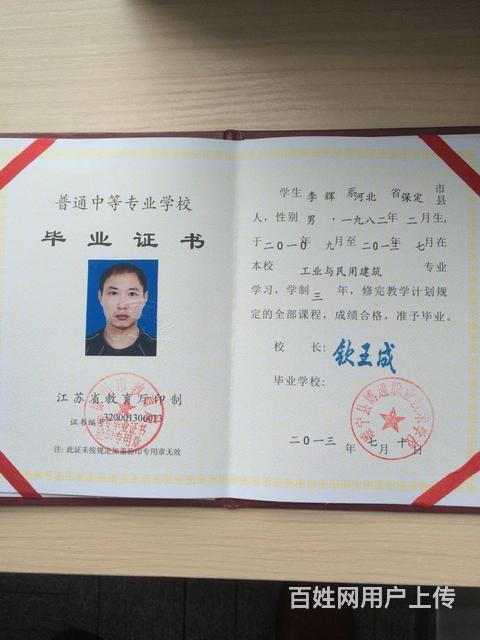 普通中等专业学校
毕业证书
江苏省教育厅印制
证书编号:320001306013
注:此证未按规定加盖验印专用章无效
学生 李辉 系河北 省保定 市县
人,性别 男 ,一九八二年 二月生,
于二〇一〇年 九月至二〇一三年 七月在
本校 工业与民用建筑 专业
学习,学制三 年,修完教学计划规
定的全部课程,成绩合格,准予毕业。
校 长:
毕业学校:
睢宁县博通职业技术学校
二〇一三年 七月 十日
百姓网用户上传